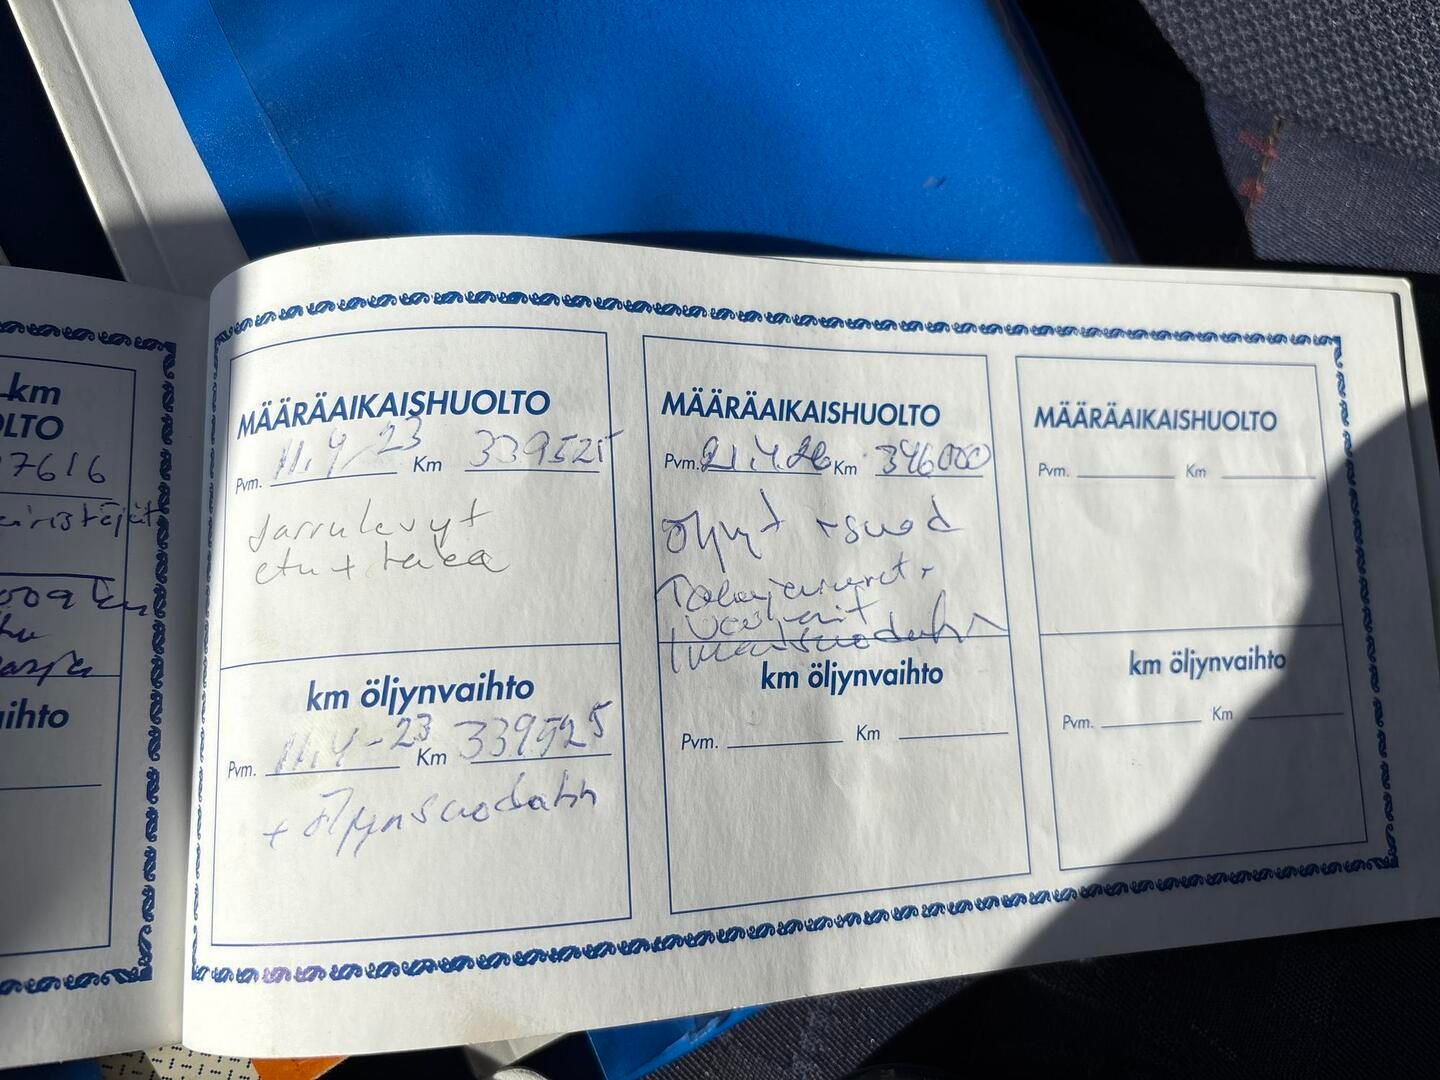 km
OLTO
7616
009 km
aihto
MÄÄRÄAIKAISHUOLTO
Pvm. 11.4/-23 Km 339525
Jarrulevyt
etu + taka
km öljynvaihto
Pvm. 11.4-23 Km 339525
+ Öljynsuodatin
MÄÄRÄAIKAISHUOLTO
Pvm. 21.4.26 Km 346000
Öljyt + suod
km öljynvaihto
Pvm. Km
MÄÄRÄAIKAISHUOLTO
Pvm. Km
km öljynvaihto
Pvm. Km